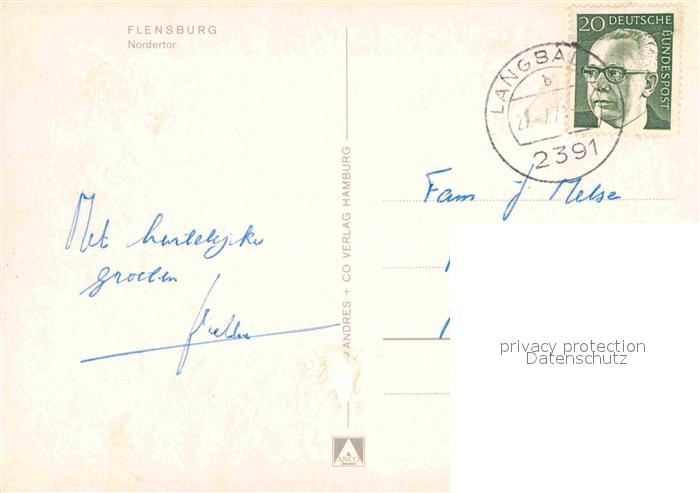 FLENSBURG
Nordertor
20 DEUTSCHE
BUNDESPOST
LANGBAL
b
2391
Fam J Melse
Met hartelijke
groeten
ANDRES + CO VERLAG HAMBURG
ANCO
privacy protection
Datenschutz